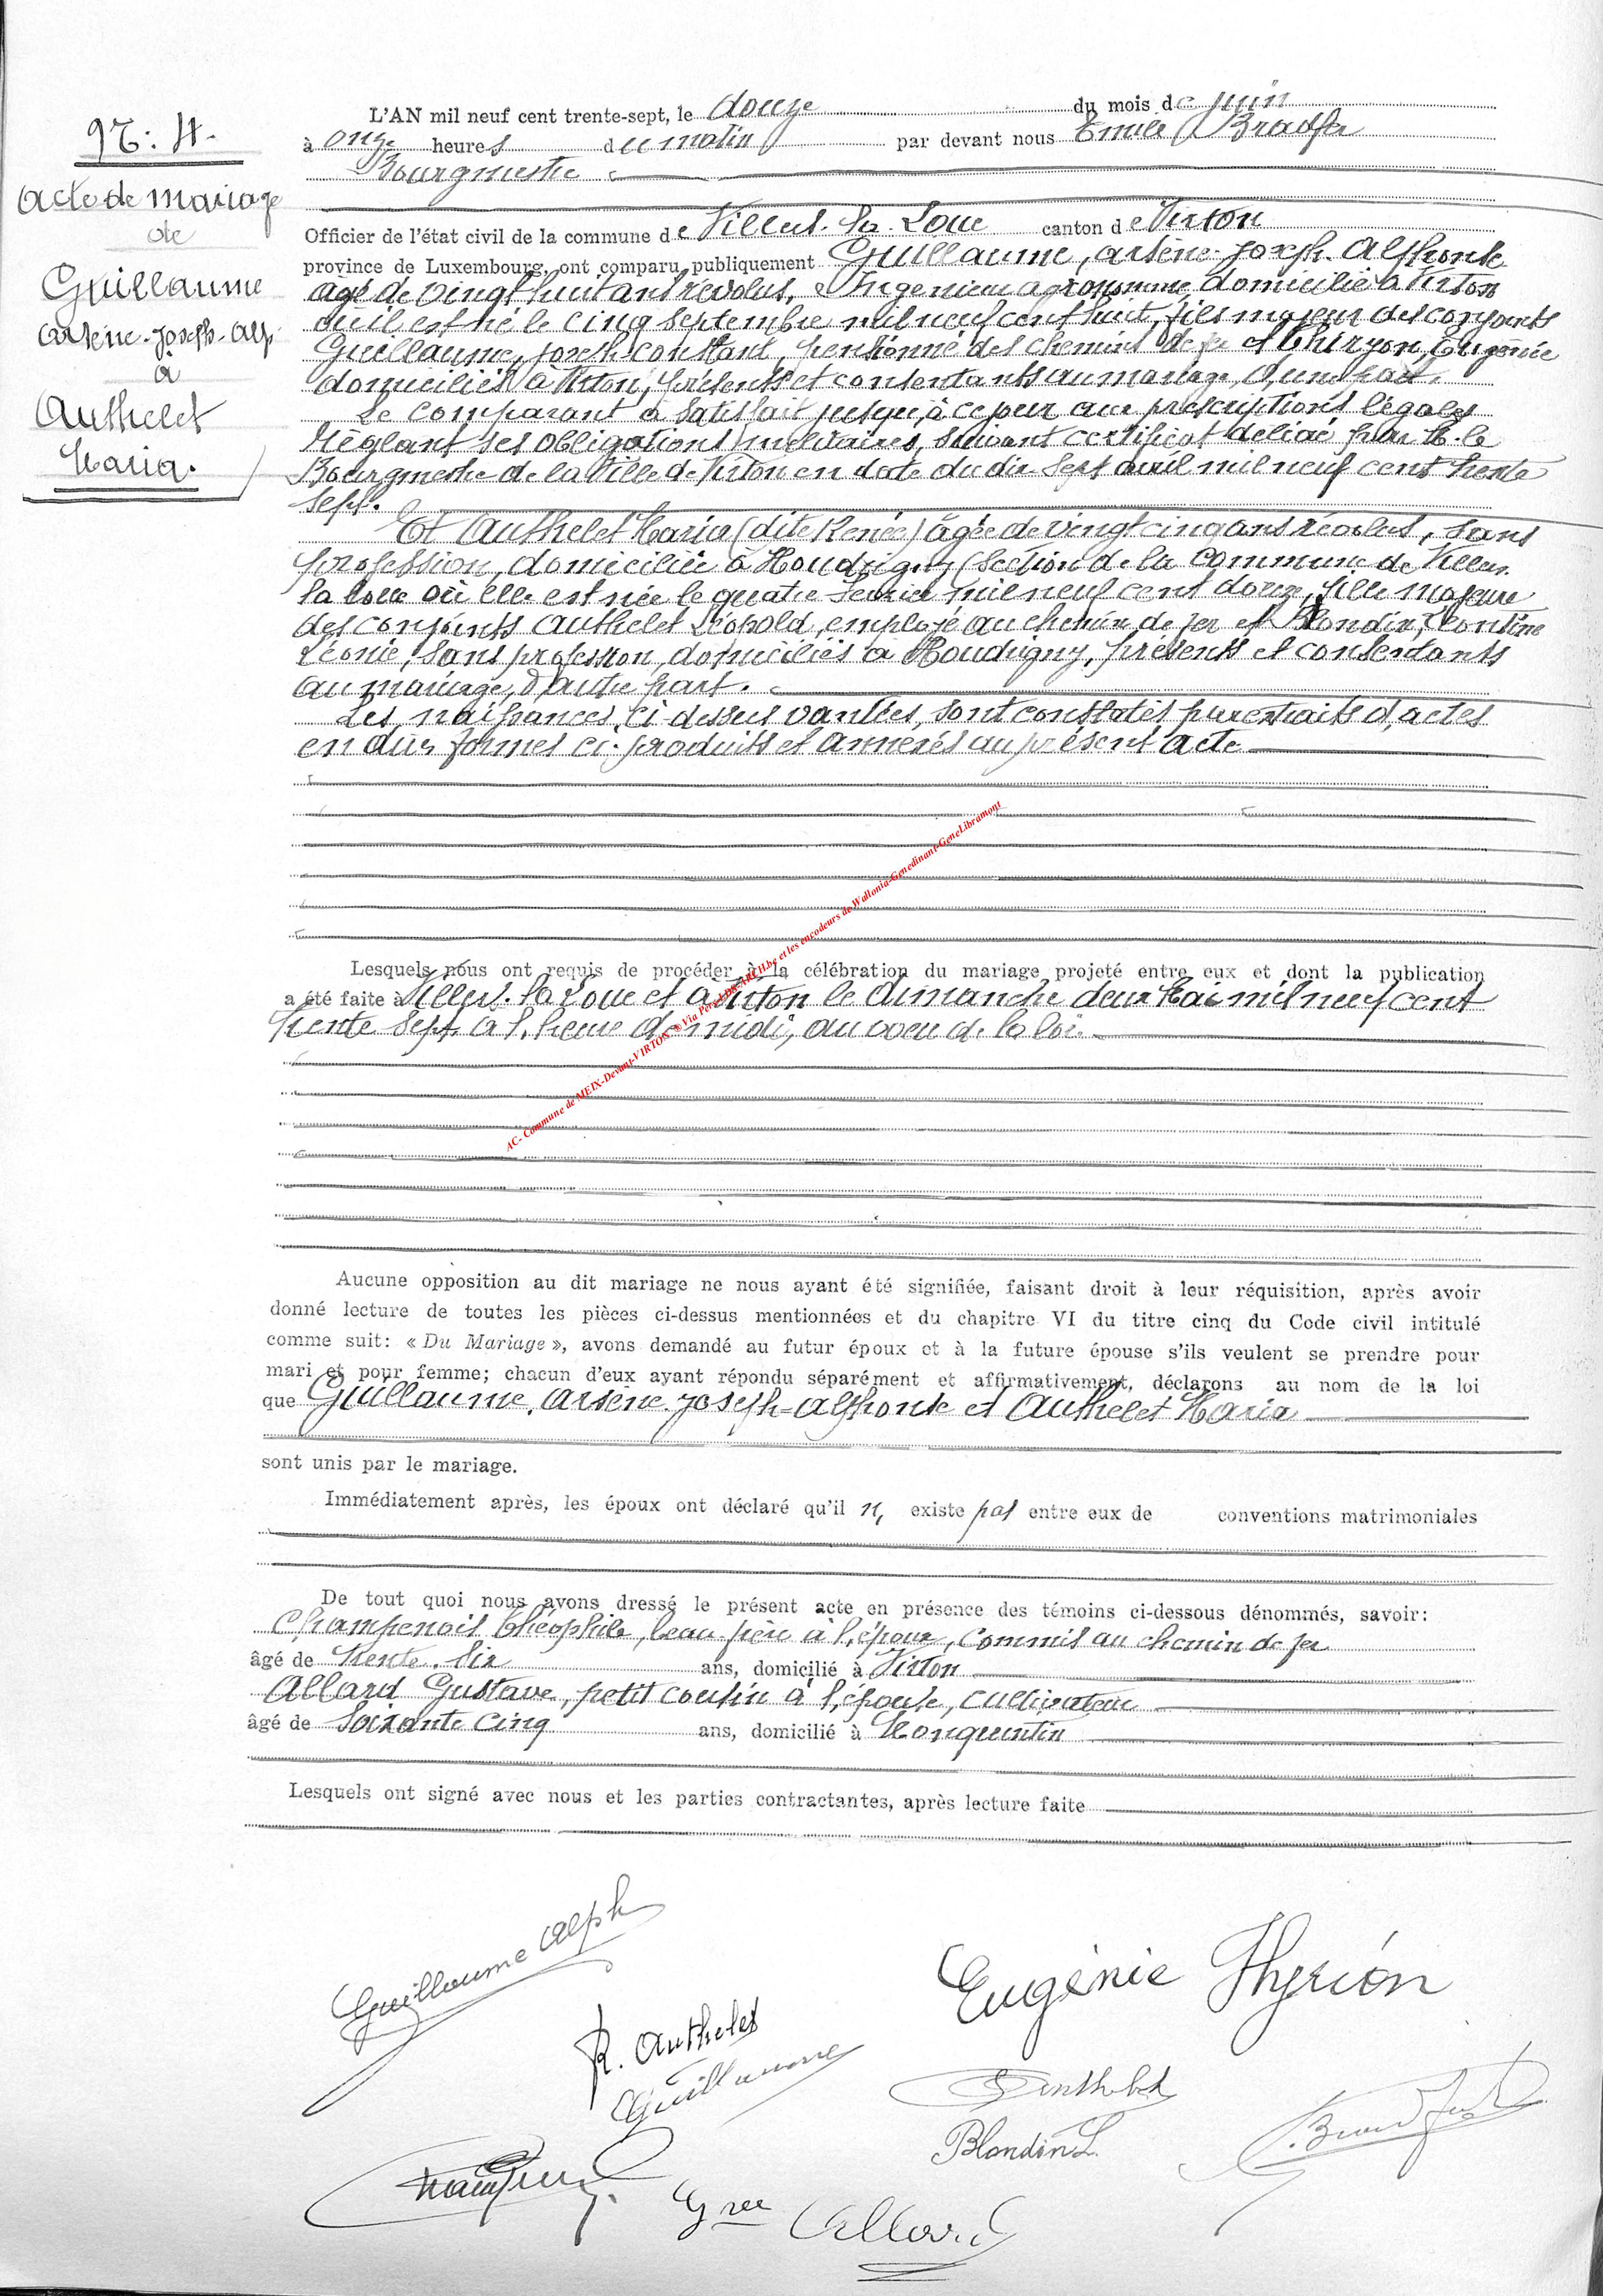 N: 4.
Acte de mariage
de
Guillaume
Arsène-Joseph-Alp.
à
Authelet
Maria.
L'AN mil neuf cent trente-sept, le douze du mois de juin
à onze heures du matin par devant nous Emile
Bourgmestre
Officier de l'état civil de la commune de Villers-la-Loue canton de Virton
province de Luxembourg, ont comparu publiquement Guillaume, Arsène-Joseph-Alphonse
âgé de vingt huit ans révolus, Ingénieur agronome, domicilié à Virton
où il est né le cinq septembre mil neuf cent huit, fils majeur des conjoints
Guillaume, Joseph-Constant, pensionné des chemins de fer et Thiryon, Eugénie
domiciliés à Virton, présents et consentants au mariage, d'une part.
Le comparant a satisfait jusqu'à ce jour aux prescriptions légales
réglant ses obligations militaires, suivant certificat délivré par M. le
Bourgmestre de la Ville de Virton en date du dix-sept avril mil neuf cent trente
sept.
Et Authelet Maria (dite Renée) âgée de vingt cinq ans révolus, sans
profession, domiciliée à Houdrigny (section de la commune de Villers-
la Loue où elle est née le quatre février mil neuf cent douze, fille majeure
des conjoints Authelet Léopold, employé au chemin de fer et Blondin,
Léonie, sans profession, domiciliés à Houdrigny, présents et consentants
au mariage, d'autre part.
Les naissances ci-dessus vantées, sont constatés par extraits d'actes
en dues formes ci-produits et annexés au présent acte
AC- Commune de MEIX-Devant-VIRTON ©Via Pers LDK-ARCH.be et les encodeurs de Wallonia-Genedinant-GeneLibramont
Lesquels nous ont requis de procéder à la célébration du mariage projeté entre eux et dont la publication
a été faite à Villers-la Loue et à Virton le dimanche deux Mai mil neuf cent
trente sept à l'heure de midi, au vœu de la loi
Aucune opposition au dit mariage ne nous ayant été signifiée, faisant droit à leur réquisition, après avoir
donné lecture de toutes les pièces ci-dessus mentionnées et du chapitre VI du titre cinq du Code civil intitulé
comme suit: « Du Mariage », avons demandé au futur époux et à la future épouse s'ils veulent se prendre pour
mari et pour femme; chacun d'eux ayant répondu séparément et affirmativement, déclarons au nom de la loi
que Guillaume, Arsène-Joseph-Alphonse et Authelet Maria
sont unis par le mariage.
Immédiatement après, les époux ont déclaré qu'il n' existe pas entre eux de conventions matrimoniales
De tout quoi nous avons dressé le présent acte en présence des témoins ci-dessous dénommés, savoir:
Champenois Théophile, beau-frère à l'époux, commis au chemin de fer
âgé de trente-six ans, domicilié à Virton
Allard Gustave, petit cousin à l'épouse, cultivateur
âgé de soixante cinq ans, domicilié à Monquintin
Lesquels ont signé avec nous et les parties contractantes, après lecture faite
Guillaume Alph
Eugénie Thyrion
R. Authelet
Guillaume
Authelet
Blondin L.
Gve Allard